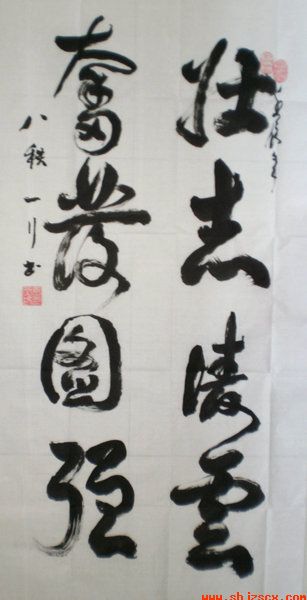 壮志凌雲
奮發圖强
八秩 一行书
www.shjzscx.com